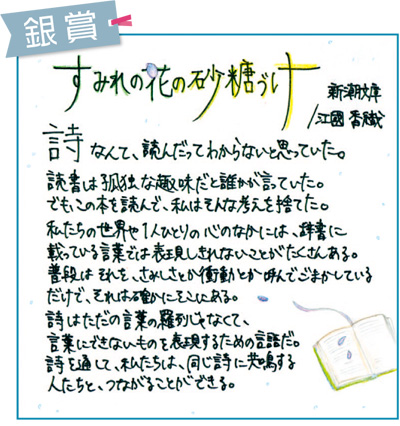 銀賞
すみれの花の砂糖づけ
新潮文庫
/江國香織
詩なんて、読んだってわからないと思っていた。
読書は孤独な趣味だと誰かが言っていた。
でもこの本を読んで、私はそんな考えを捨てた。
私たちの世界や1人ひとりの心のなかには、辞書に
載っている言葉では表現しきれないことがたくさんある。
普段はそれを、さみしさとか衝動とか呼んでごまかしている
だけで、それは確かにそこにある。
詩はただの言葉の羅列じゃなくて、
言葉にできないものを表現するための言語だ。
詩を通して、私たちは、同じ詩に共鳴する
人たちと、つながることができる。